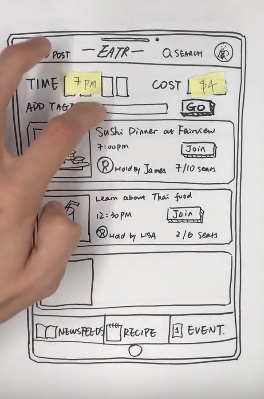 POST -EATR- SEARCH
TIME 7PM COST $4
ADD TAG GO
Sushi Dinner at Fairview
7:00PM Join
R Hold by James 7/10 seats
Learn about Thai food
12:30PM Join
R Hold by LISA 2/6 seats
NEWSFEEDS RECIPE 1 EVENT.